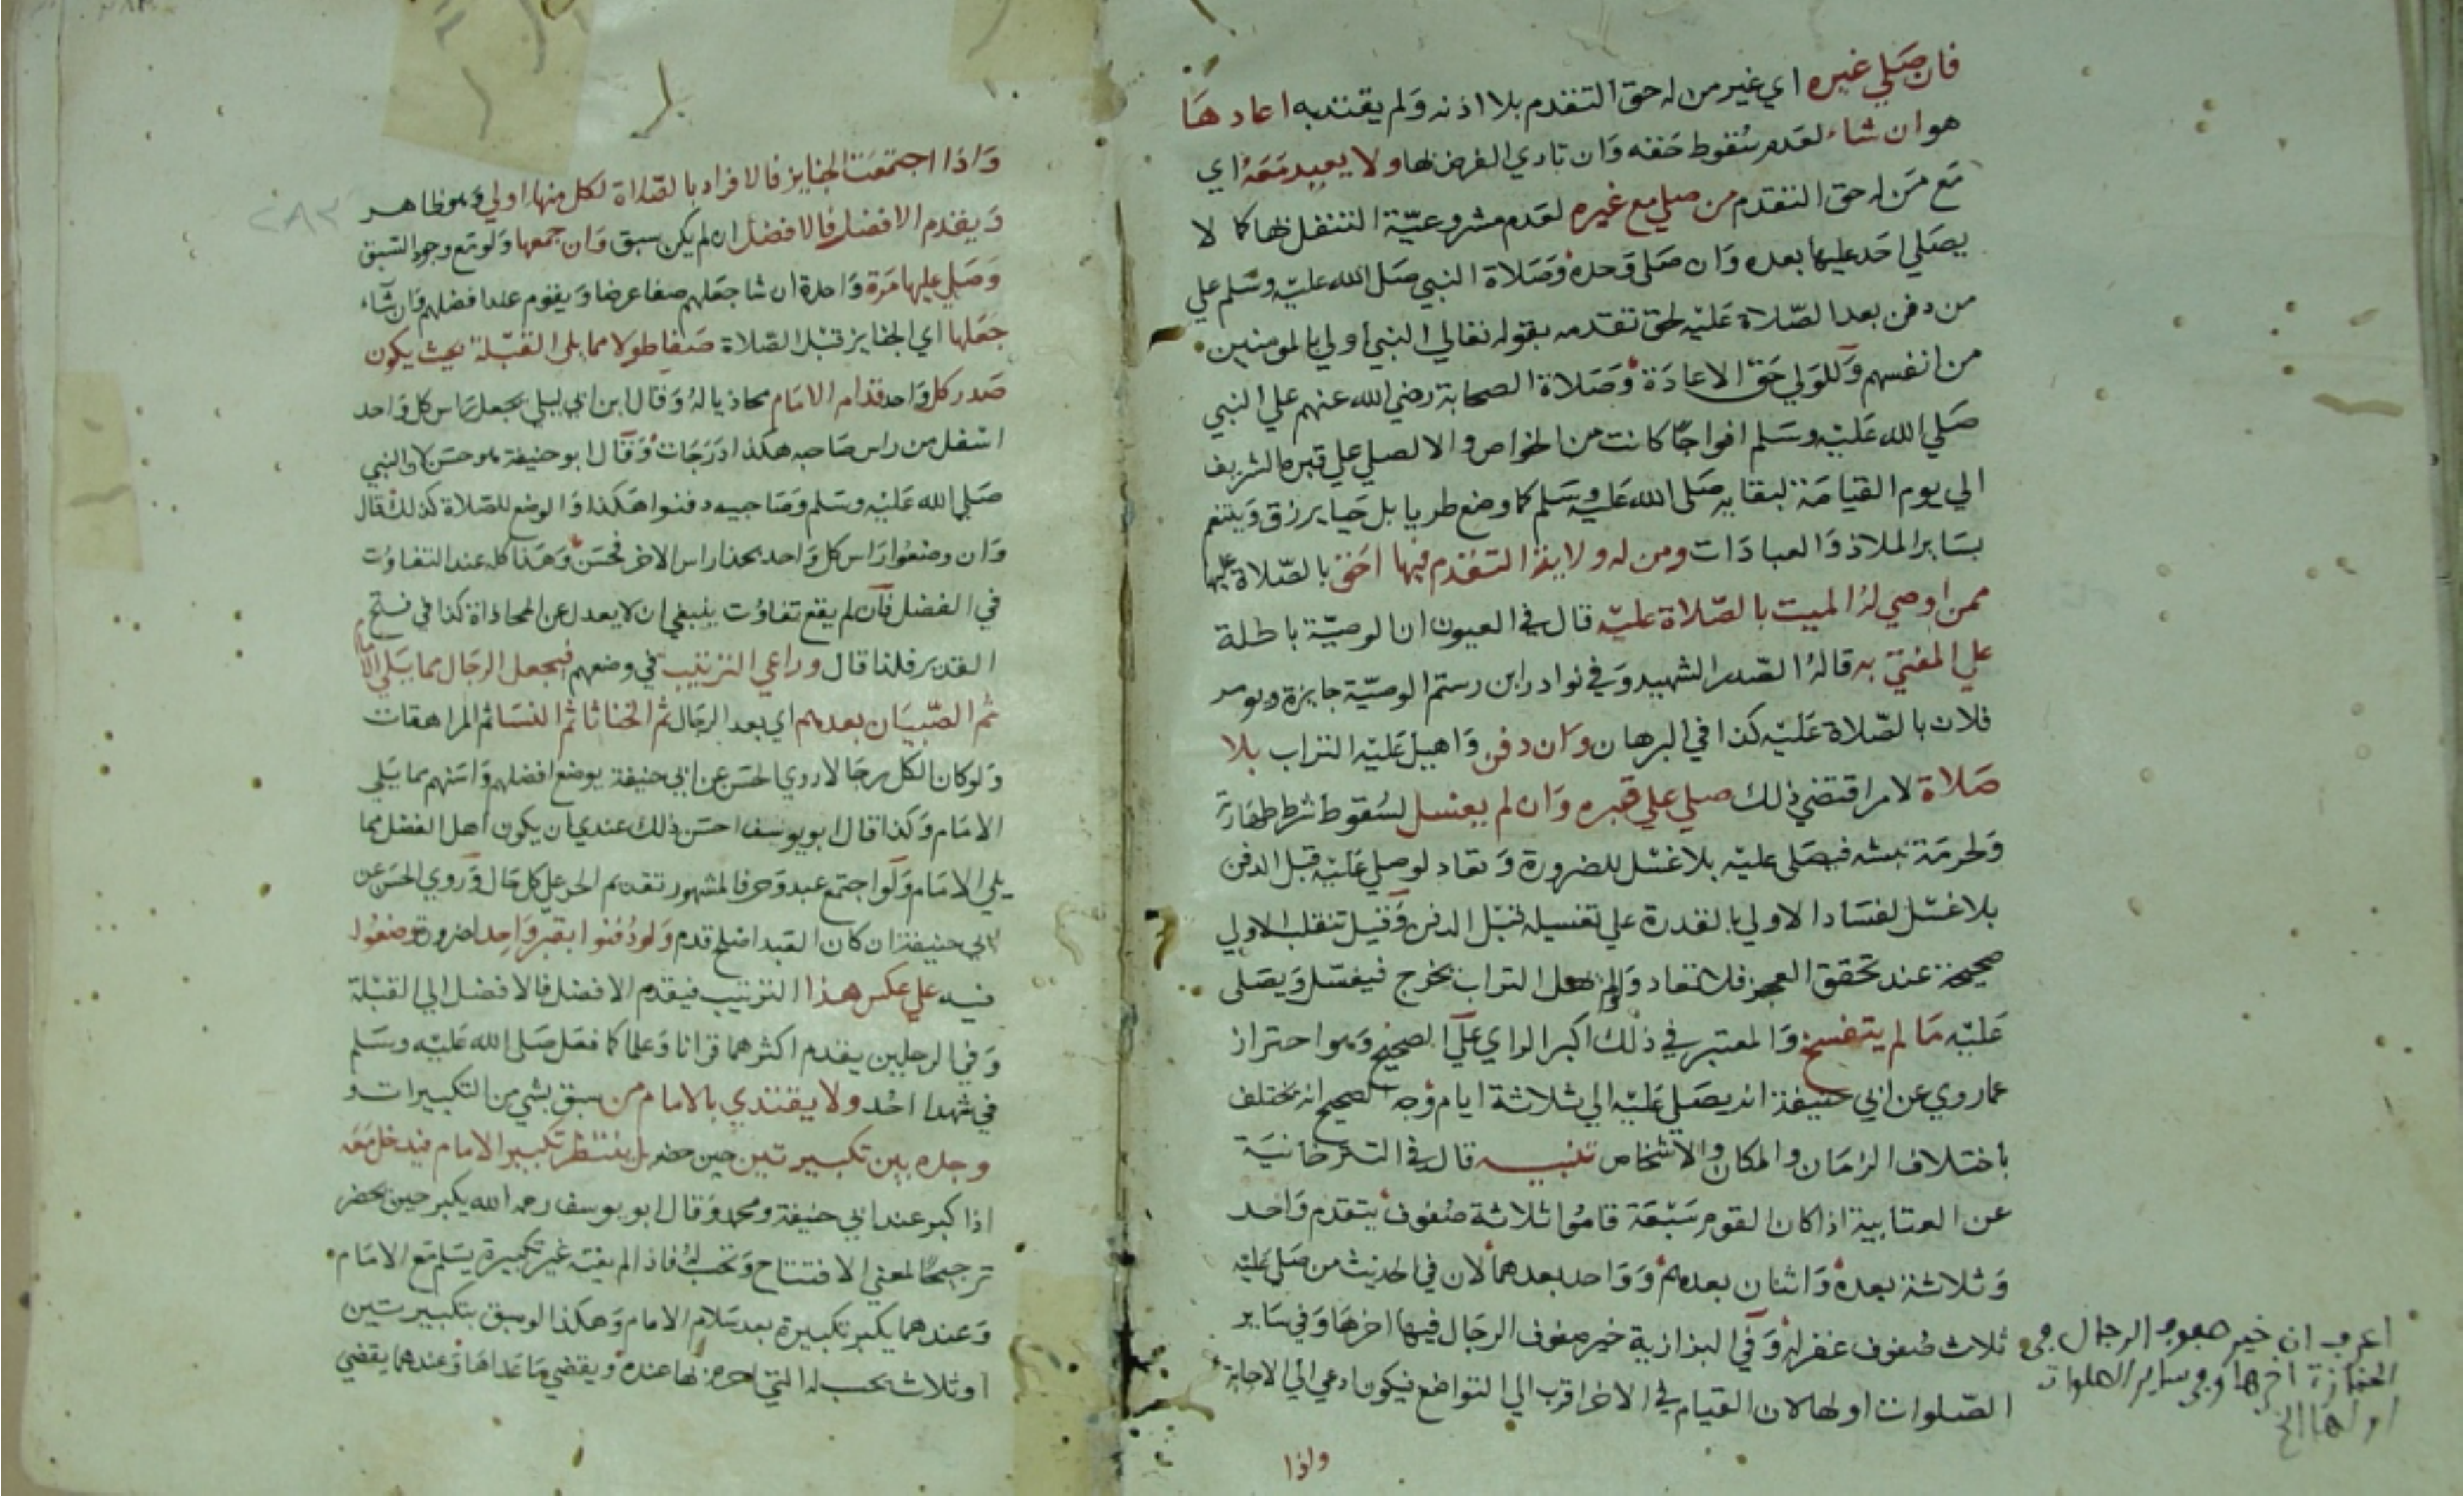 فان صلي غيره اي غير من له حق التقدم بلا اذنه ولم يقتد به اعادها
هو ان شاء لعدم سقوط حقه وان تادي الفرض بها ولا يعيد معه اي
مع من له حق التقدم من صلي مع غيره لعدم مشروعية التنفل بها كما لا
يصلي احد عليها بعده وان صلي وحده وصلاة النبي صلى الله عليه وسلم علي
من دفن بعد الصلاة عليه لحق تقدمه بقوله تعالي النبي اولي بالمومنين
من انفسهم وللولي حق الاعادة وصلاة الصحابة رضي الله عنهم علي النبي
صلي الله عليه وسلم افواجا كانت من الخواص والا لصلي علي قبره الشريف
الي يوم القيامة لبقايه صلى الله عليه وسلم كما وضع طريا بل حيا يرزق ويتنعم
بساير الملاذ والعبادات ومن له ولاية التقدم فيها احق بالصلاة عليها
ممن اوصي له الميت بالصلاة عليه قال في العيون ان الوصية باطلة
علي المفتي به قاله الصدر الشهيد وفي نوادر ابن رستم الوصية جايزة ويومر
فلان بالصلاة عليه كذا في البرهان وان دفن واهيل عليه التراب بلا
صلاة لامر اقتضي ذلك صلي علي قبره وان لم يغسل لسقوط شرط طهارته
ولحرمة نبشه فيصلى عليه بلا غسل للضرورة وتعاد لو صلي عليه قبل الدفن
بلا غسل لفساد الاولي بالقدرة علي تغسيله قبل الدفن وقيل تنقلب الاولي
صحيحة عند تحقق العجز فلا تعاد ولو لم يهل التراب يخرج فيغسل ويصلى
عليه ما لم يتفسخ والمعتبر في ذلك اكبر الراي علي الصحيح وهو احتراز
عما روي عن ابي حنيفة انه يصلي عليه الي ثلاثة ايام وجه الصحيح انه يختلف
باختلاف الزمان والمكان والاشخاص تنبيه قال في التترخانية
عن العتابية اذا كان القوم سبعة قاموا ثلاثة صفوف يتقدم واحد
وثلاثة بعده واثنان بعدهم وواحد بعدهما لان في الحديث من صلي عليه
ثلاث صفوف غفر له وفي البزازية خير صفوف الرجال فيها اخرها وفي ساير
الصلوات اولها لان القيام في الاخر اقرب الي التواضع فيكون ادعي الي الاجابة
واذا
اعرف ان خير صفوف الرجال في
الجنازة اخرها وفي ساير الصلوات
اولها الخ
٢٨٣
واذا اجتمعت الجنايز فالافراد بالصلاة لكل منها اولي وهو ظاهر
ويقدم الافضل فالافضل ان لم يكن سبق وان جمعها ولو مع وجود السبق
وصلي عليها مرة واحدة ان شا جعلهم صفا عرضا ويقوم عند افضلهم وان شاء
جعلها اي الجنايز قبل الصلاة صفا طولا مما يلي القبلة بحيث يكون
صدر كل واحد قدام الامام محاذيا له وقال ابن ابي ليلي يجعل راس كل واحد
اسفل من راس صاحبه هكذا درجات وقال ابو حنيفة هو حسن لان النبي
صلي الله عليه وسلم وصاحبيه دفنوا هكذا والوضع للصلاة كذلك قال
وان وضعوا راس كل واحد بحذا راس الاخر فحسن وهذا كله عند التفاوت
في الفضل فان لم يقع تفاوت ينبغي ان لا يعدل عن المحاذاة كذا في فتح
القدير فلذا قال وراعي الترتيب في وضعهم فيجعل الرجال مما يلي الامام
ثم الصبيان بعدهم اي بعد الرجال ثم الخناثا ثم النسا ثم المراهقات
ولو كان الكل رجالا روي الحسن عن ابي حنيفة يوضع افضلهم واسنهم مما يلي
الامام وكذا قال ابو يوسف احسن ذلك عندي ان يكون اهل الفضل مما
يلي الامام ولو اجتمع عبد وحر فالمشهور تقديم الحر علي كل حال وروي الحسن عن
ابي حنيفة ان كان العبد اصلح قدم ولو دفنوا بقبر واحد لضرورة وضعوا
فيه علي عكس هذا الترتيب فيقدم الافضل فالافضل الي القبلة
وفي الرجلين يقدم اكثرهما قرانا وعلما كما فعل صلى الله عليه وسلم
في شهدا احد ولا يقتدي بالامام من سبق بشي من التكبيرات و
وجده بين تكبيرتين حين حضر بل ينتظر تكبير الامام فيدخل معه
اذا كبر عند ابي حنيفة ومحمد وقال ابو يوسف رحمه الله يكبر حين يحضر
ترجيحا لمعني الافتتاح وتحسب له فاذا لم يفته غير تكبيرة يسلم مع الامام
وعندهما يكبر تكبيرة بعد سلام الامام وهكذا لو سبق بتكبيرتين
او ثلاث يحسب له التي احرم بها عنده ويقضي ما عداها وعندهما يقضي